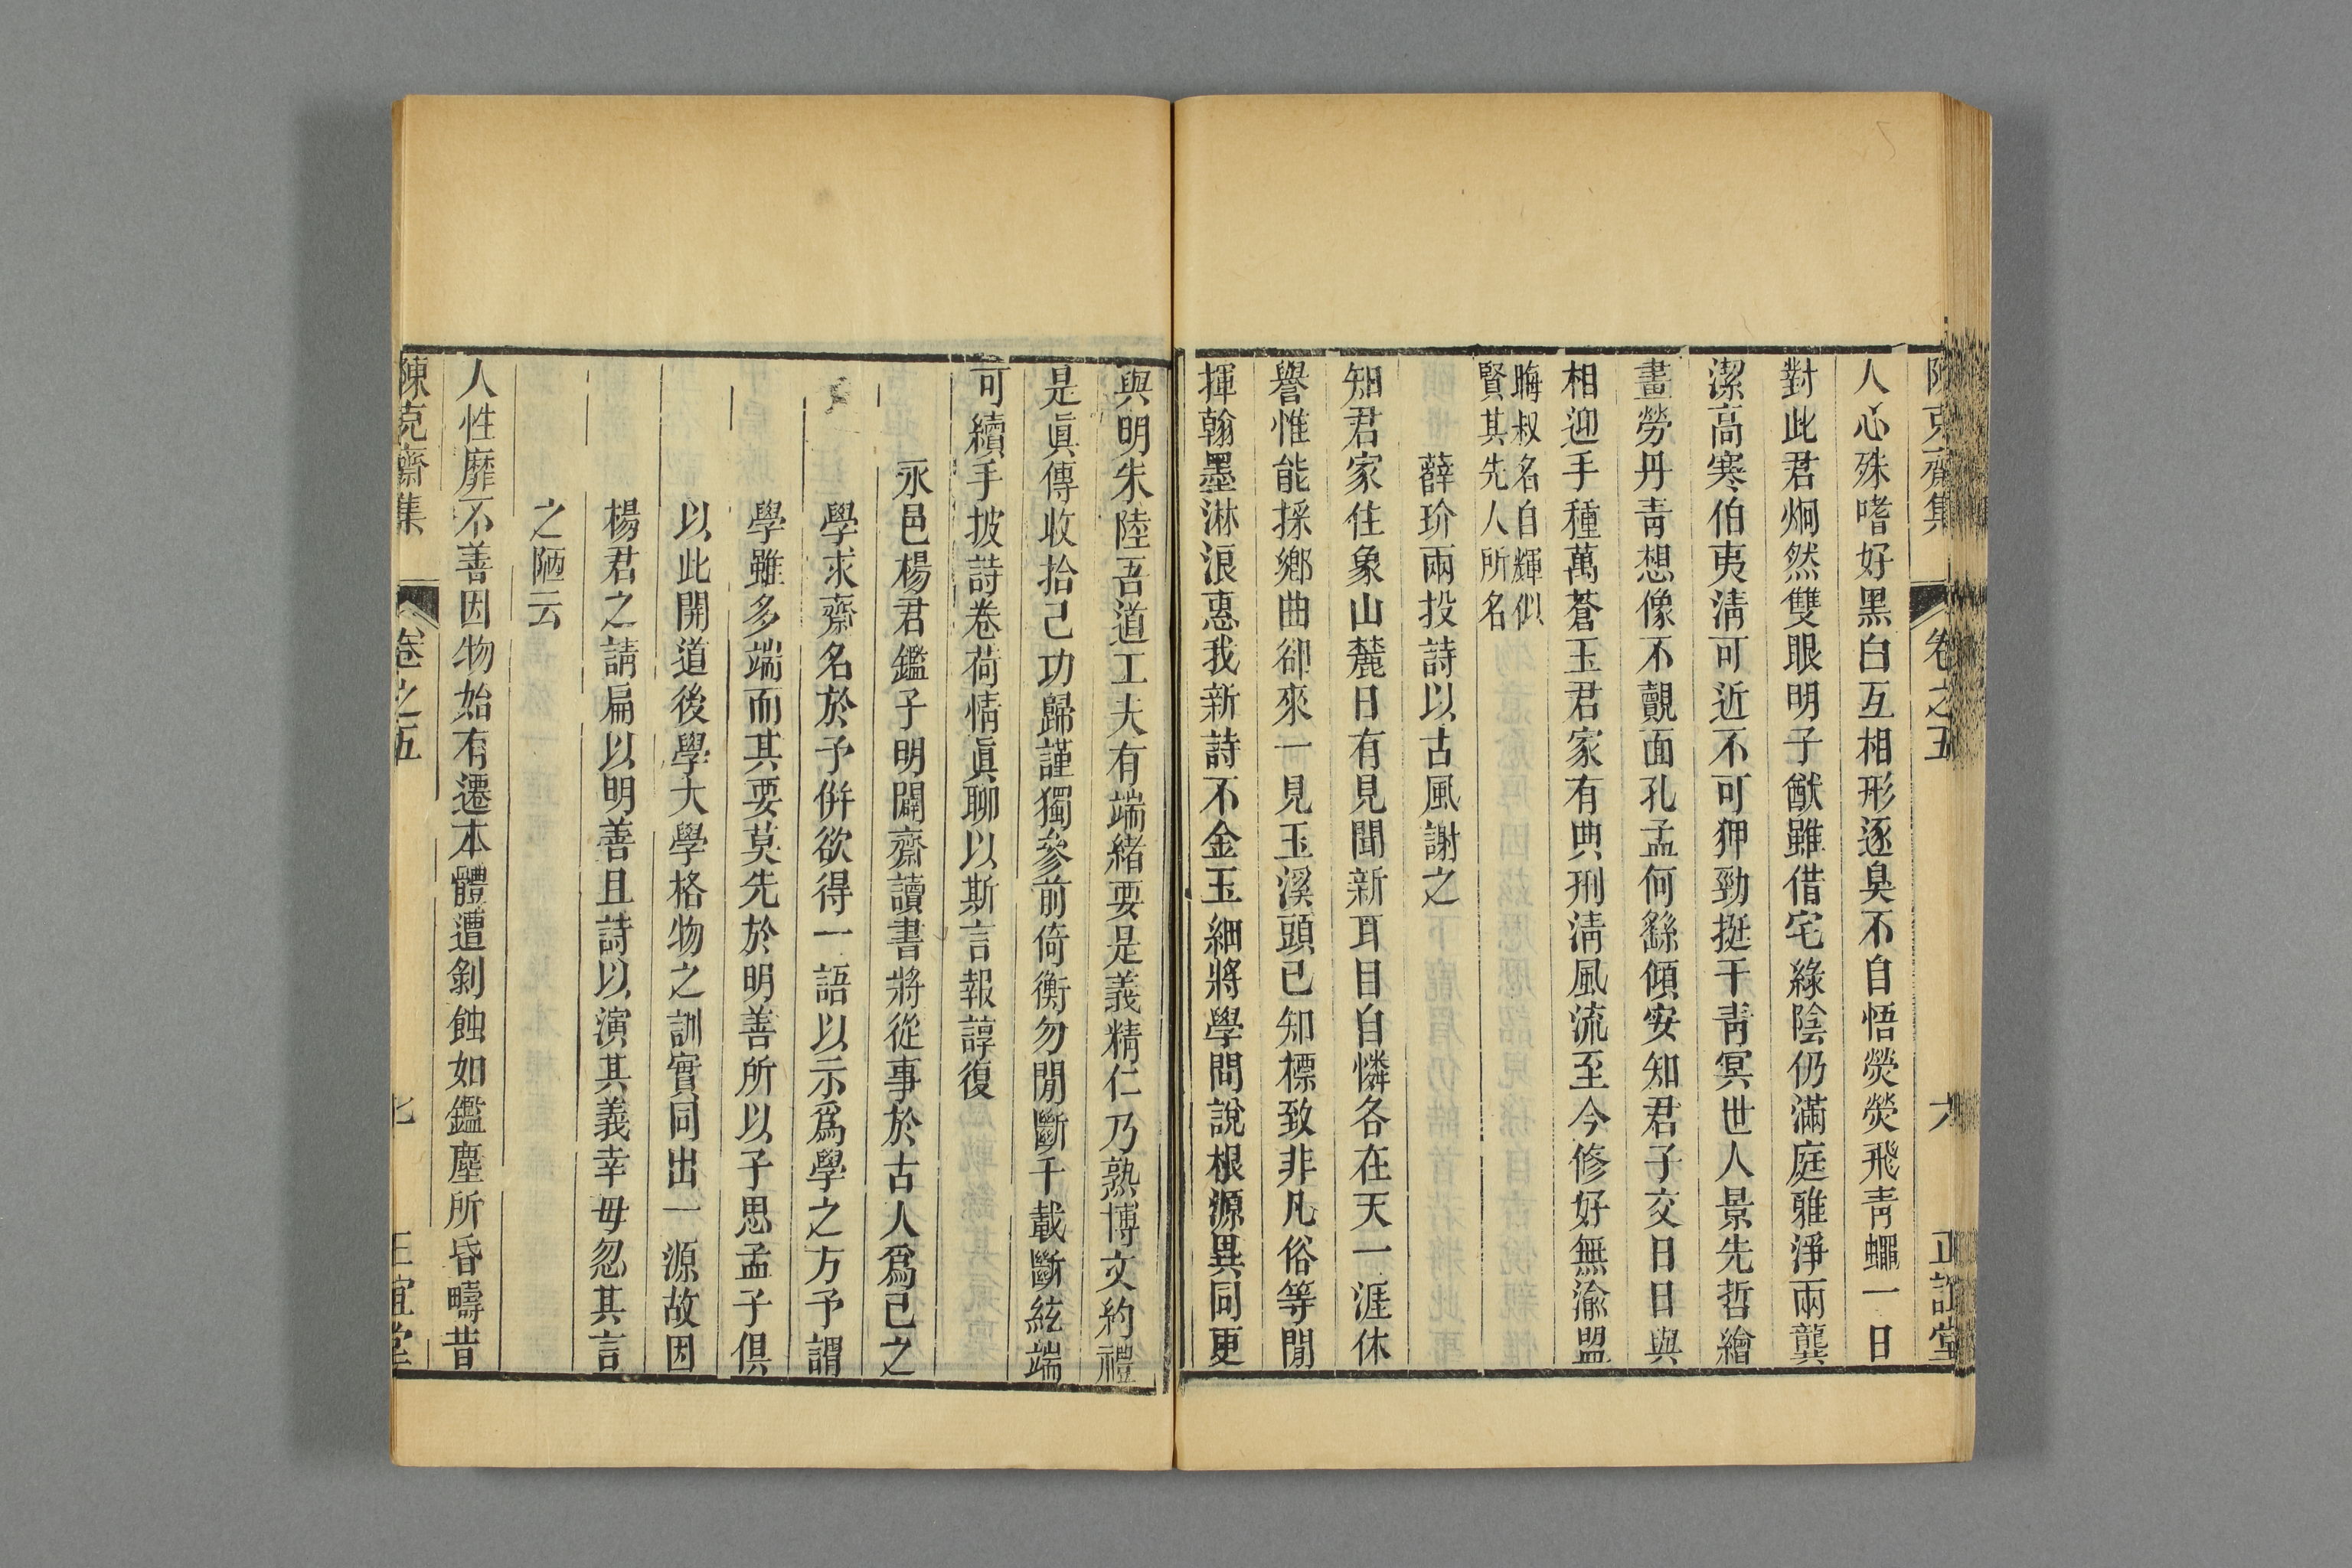 陳克齋集 卷之五 六 正誼堂
人心殊嗜好黑白互相形逐臭不自悟熒熒飛靑蠅一日
對此君炯然雙眼明子猷雖借宅綠陰仍滿庭雅淨兩龔
潔高寒伯夷淸可近不可狎勁挺干靑冥世人景先哲繪
畫勞丹靑想像不覿面孔孟何繇傾安知君子交日日與
相迎手種萬蒼玉君家有典刑淸風流至今修好無渝盟
晦叔名自輝似
賢其先人所名
薛玠兩投詩以古風謝之
知君家住象山麓日有見聞新耳目自憐各在天一涯休
譽惟能採鄉曲卻來一見玉溪頭已知標致非凡俗等閒
揮翰墨淋浪惠我新詩不金玉細將學問說根源異同更
與明朱陸吾道工夫有端緒要是義精仁乃熟博文約禮
是眞傳收拾己功歸謹獨參前倚衡勿閒斷千載斷絃端
可續手披詩卷荷情眞聊以斯言報諄復
永邑楊君鑑子明闢齋讀書將從事於古人爲己之
學求齋名於予倂欲得一語以示爲學之方予謂
學雖多端而其要莫先於明善所以子思孟子俱
以此開道後學大學格物之訓實同出一源故因
楊君之請扁以明善且詩以演其義幸毋忽其言
之陋云
人性靡不善因物始有遷本體遭剝蝕如鑑塵所昏疇昔
陳克齋集 卷之五 七 正誼堂